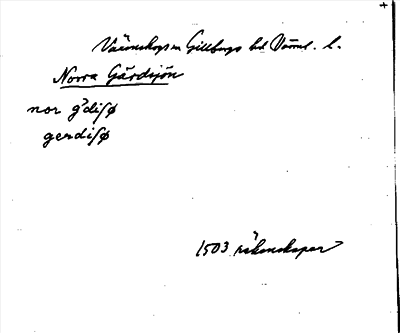 Värmskogs sn Gillbergs hd Värml. l.
Norra Gärdsjön
nor gä̀diʃø
gerdiʃø
1503 räkenskaper